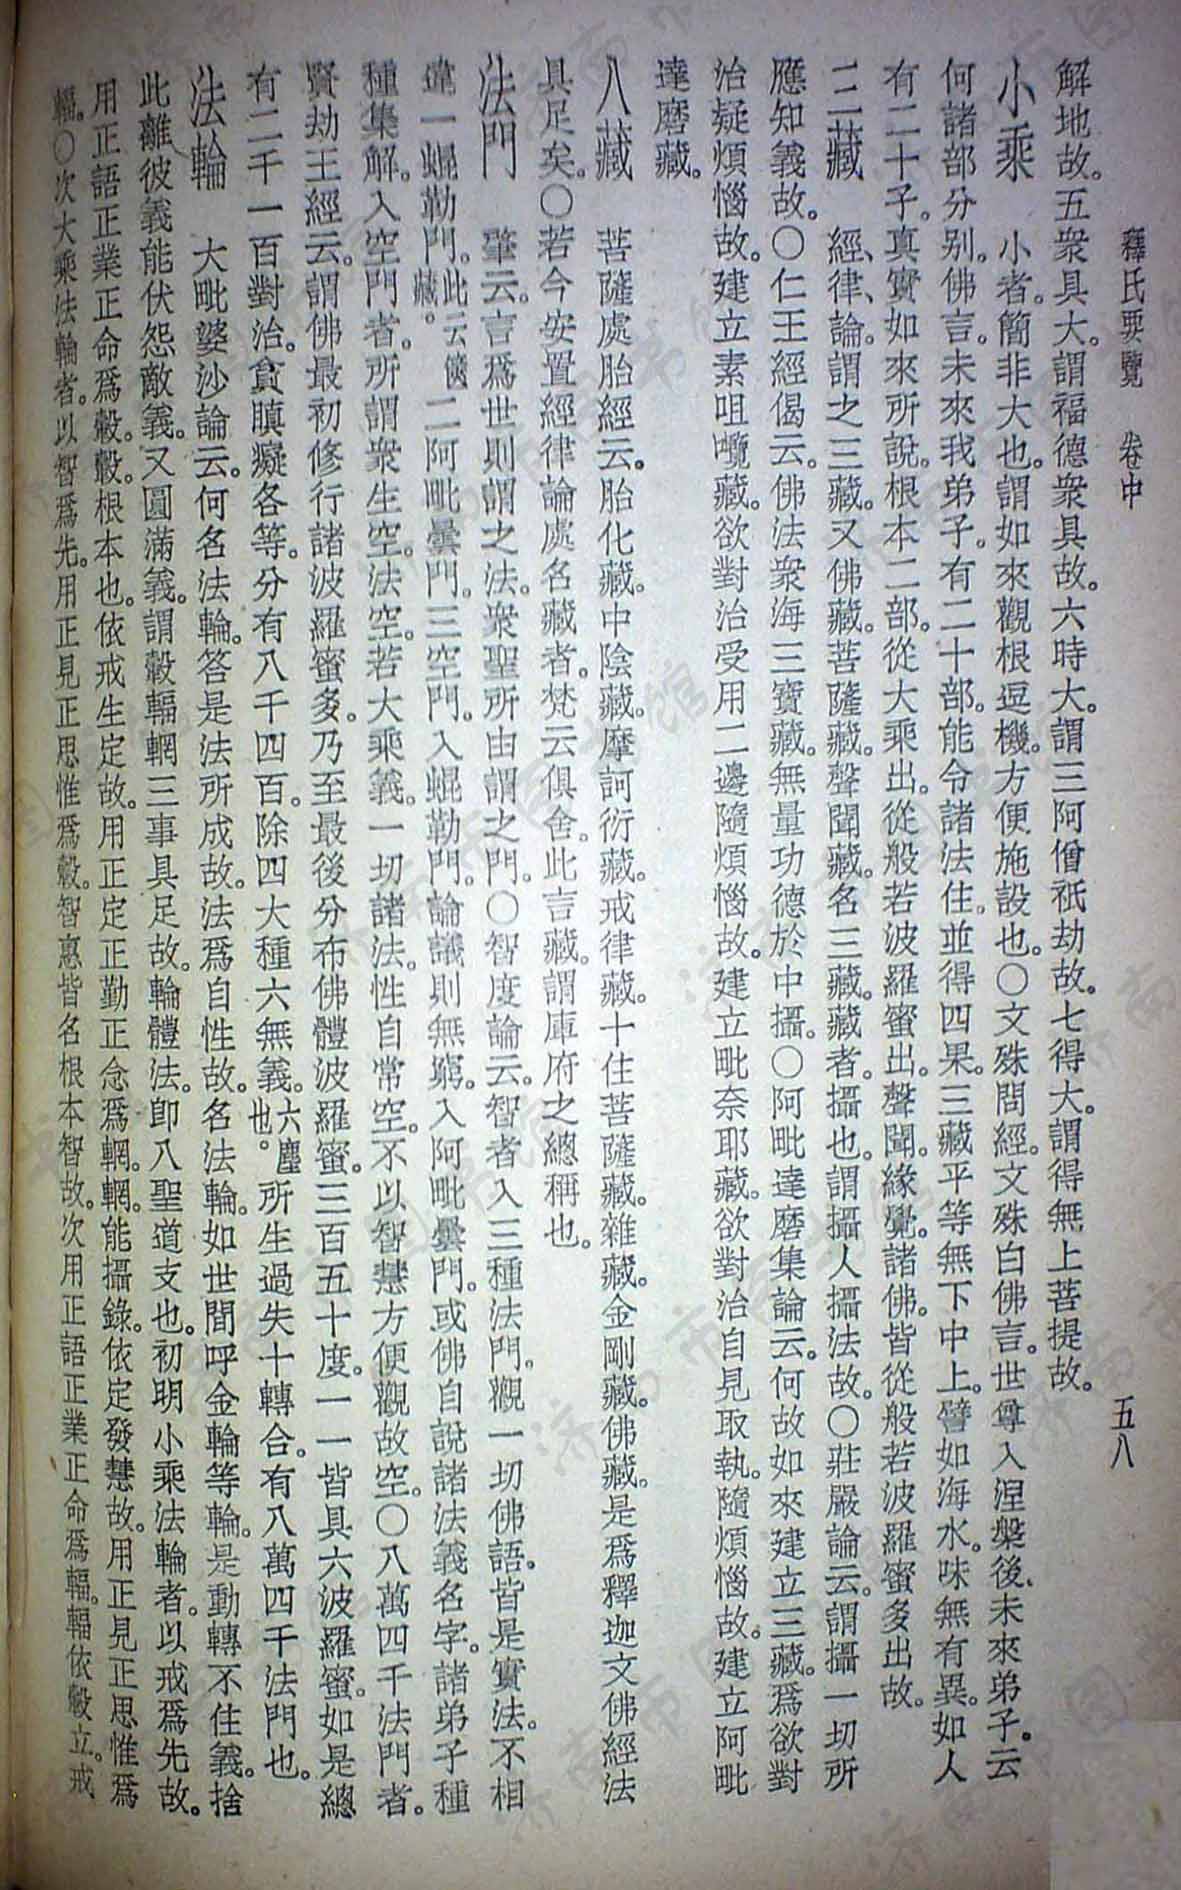 釋氏要覽 卷中 五八
解地故。五衆具大。謂福德衆具故。六時大。謂三阿僧祇劫故。七得大。謂得無上菩提故。
小乘 小者。簡非大也。謂如來觀根逗機。方便施設也。〇文殊問經。文殊白佛言。世尊入涅槃後、未來弟子。云
何諸部分別。佛言。未來我弟子。有二十部。能令諸法住。並得四果。三藏平等無下中上。譬如海水。味無有異。如人
有二十子。真實如來所說。根本二部。從大乘出。從般若波羅蜜出。聲聞。緣覺。諸佛。皆從般若波羅蜜多出故。
三藏 經、律、論。謂之三藏。又佛藏。菩薩藏。聲聞藏。名三藏。藏者。攝也。謂攝人攝法故。〇莊嚴論云。謂攝一切所
應知義故。〇仁王經偈云。佛法衆海三寶藏。無量功德於中攝。〇阿毗達磨集論云。何故如來建立三藏。爲欲對
治疑煩惱故。建立素咀纜藏。欲對治受用二邊隨煩惱故。建立毗奈耶藏。欲對治自見取執。隨煩惱故。建立阿毗
達磨藏。
八藏 菩薩處胎經云。胎化藏。中陰藏。摩訶衍藏。戒律藏。十住菩薩藏。雜藏。金剛藏。佛藏。是爲釋迦文佛經法
具足矣。〇若今安置經律論處名藏者。梵云俱舍。此言藏。謂庫府之總稱也。
法門 肇云。言爲世則謂之法。衆聖所由謂之門。〇智度論云。智者入三種法門。觀一切佛語。皆是實法。不相
違一蜫勒門。此云篋藏。二阿毗曇門。三空門。入蜫勒門。論議則無窮。入阿毗曇門。或佛自說諸法義名字。諸弟子種
種集解。入空門者。所謂衆生空。法空。若大乘義。一切諸法。性自常空。不以智慧方便觀故空。〇八萬四千法門者。
賢劫王經云。謂佛最初修行諸波羅蜜多。乃至最後分布佛體波羅蜜。三百五十度。一一皆具六波羅蜜。如是總
有二千一百對治。貪瞋癡各等。分有八千四百。除四大種六無義。六塵也。所生過失十轉合。有八萬四千法門也。
法輪 大毗婆沙論云。何名法輪。答是法所成故。法爲自性故。名法輪。如世間呼金輪等輪。是動轉不住義。捨
此離彼義能伏怨敵義。又圓滿義。謂轂輻輞三事具足故。輪體法。卽八聖道支也。初明小乘法輪者。以戒爲先故。
用正語正業正命爲轂。轂。根本也。依戒生定故。用正定正勤正念爲輞。輞。能攝錄。依定發慧故。用正見正思惟爲
輻。〇次大乘法輪者。以智爲先。用正見正思惟爲轂。智惠皆名根本智故。次用正語正業正命爲輻。輻依轂立。戒